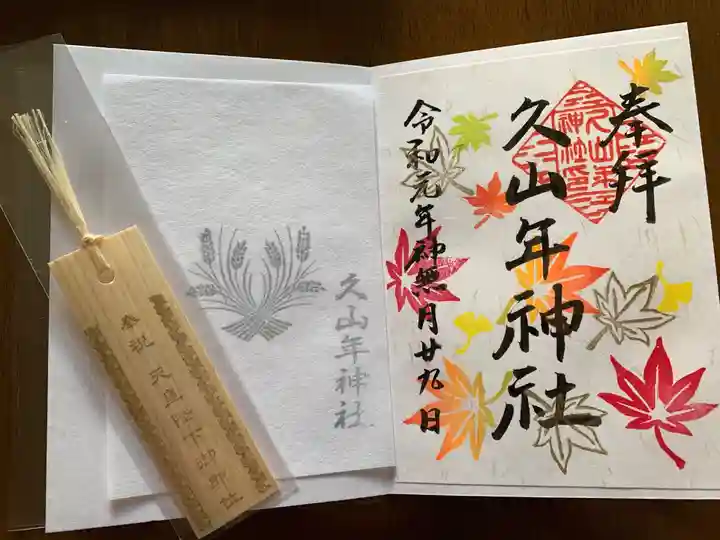 奉拝
久山年神社
令和元年神無月廿九日
久山年神社
奉祝 天皇陛下御即位